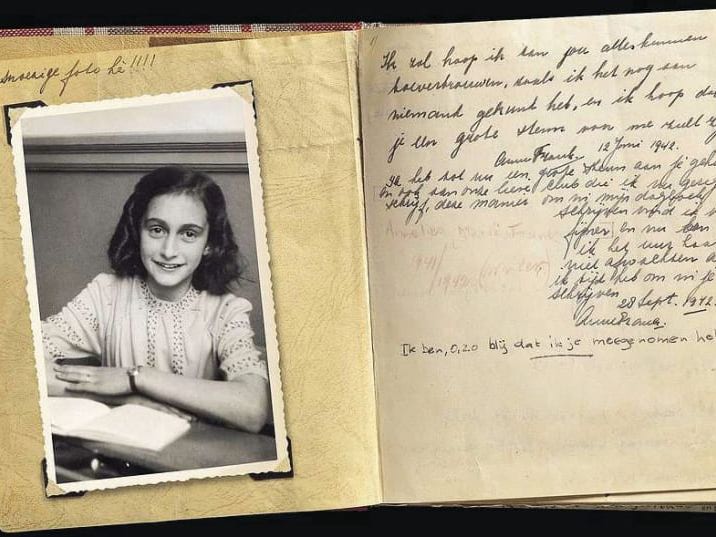 snoezige foto hè!!!!
Ik zal hoop ik aan jou alles kunnen
toevertrouwen, zoals ik het nog aan
niemand gekund heb, en ik hoop da
je een grote steun voor me zult
Anne Frank. 12 Juni 1942.
Ik heb tot nu een grote steun aan je geh
en ook aan onze lieve club die ik nu gere
schrijf, deze manier om in mijn dagboek
schrijven vind ik
fijner en nu kan
ik het uur haas
niet afwachten a
ik tijd heb om in je
schrijven
28 Sept. 1942.
Anne Frank.
Ik ben, o, zo blij dat ik je meegenomen he